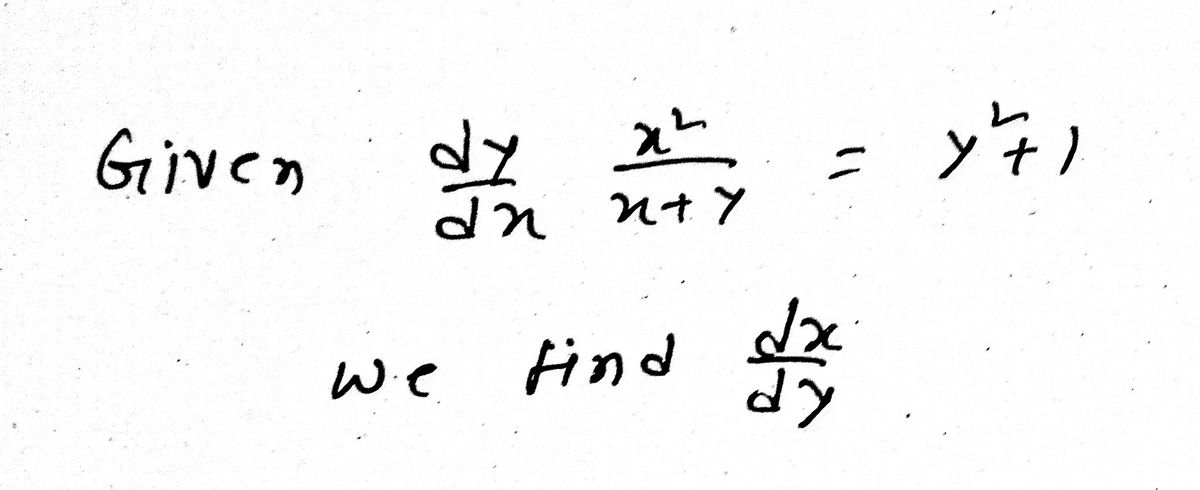 Given dy/dx x²/x+y = y²+1
we find dx/dy